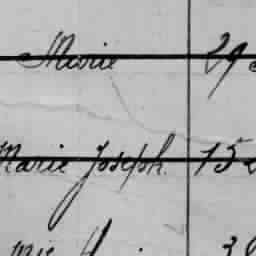 Marie 29
Marie Joseph. 15